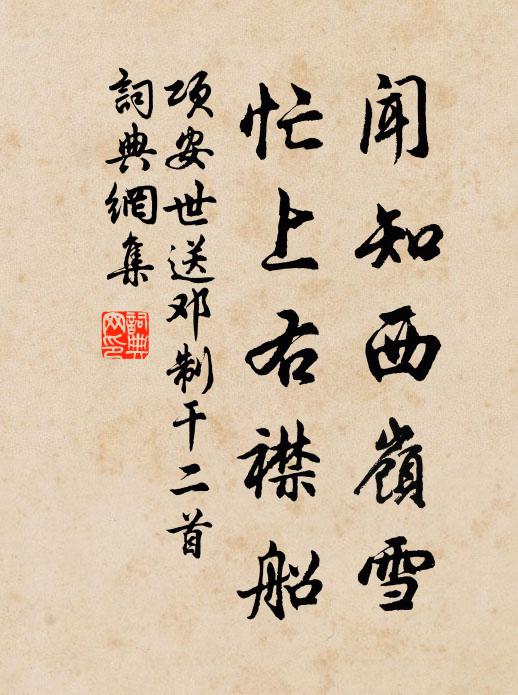 闻知西嶺雪
忙上右襟船
项安世送邓制干二首
詞典網集
詞典网印